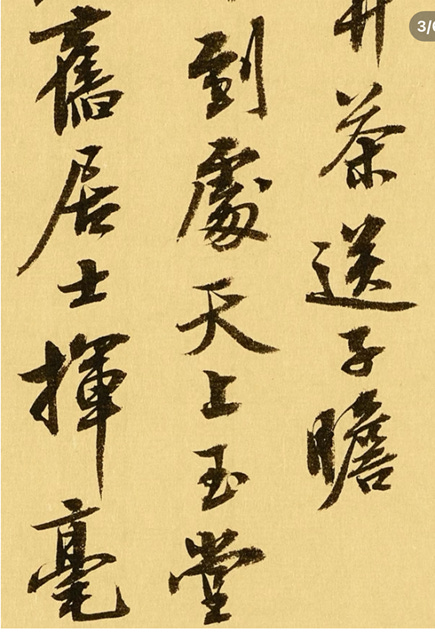 3/
井茶送子瞻
到處天上玉堂
舊居士揮毫